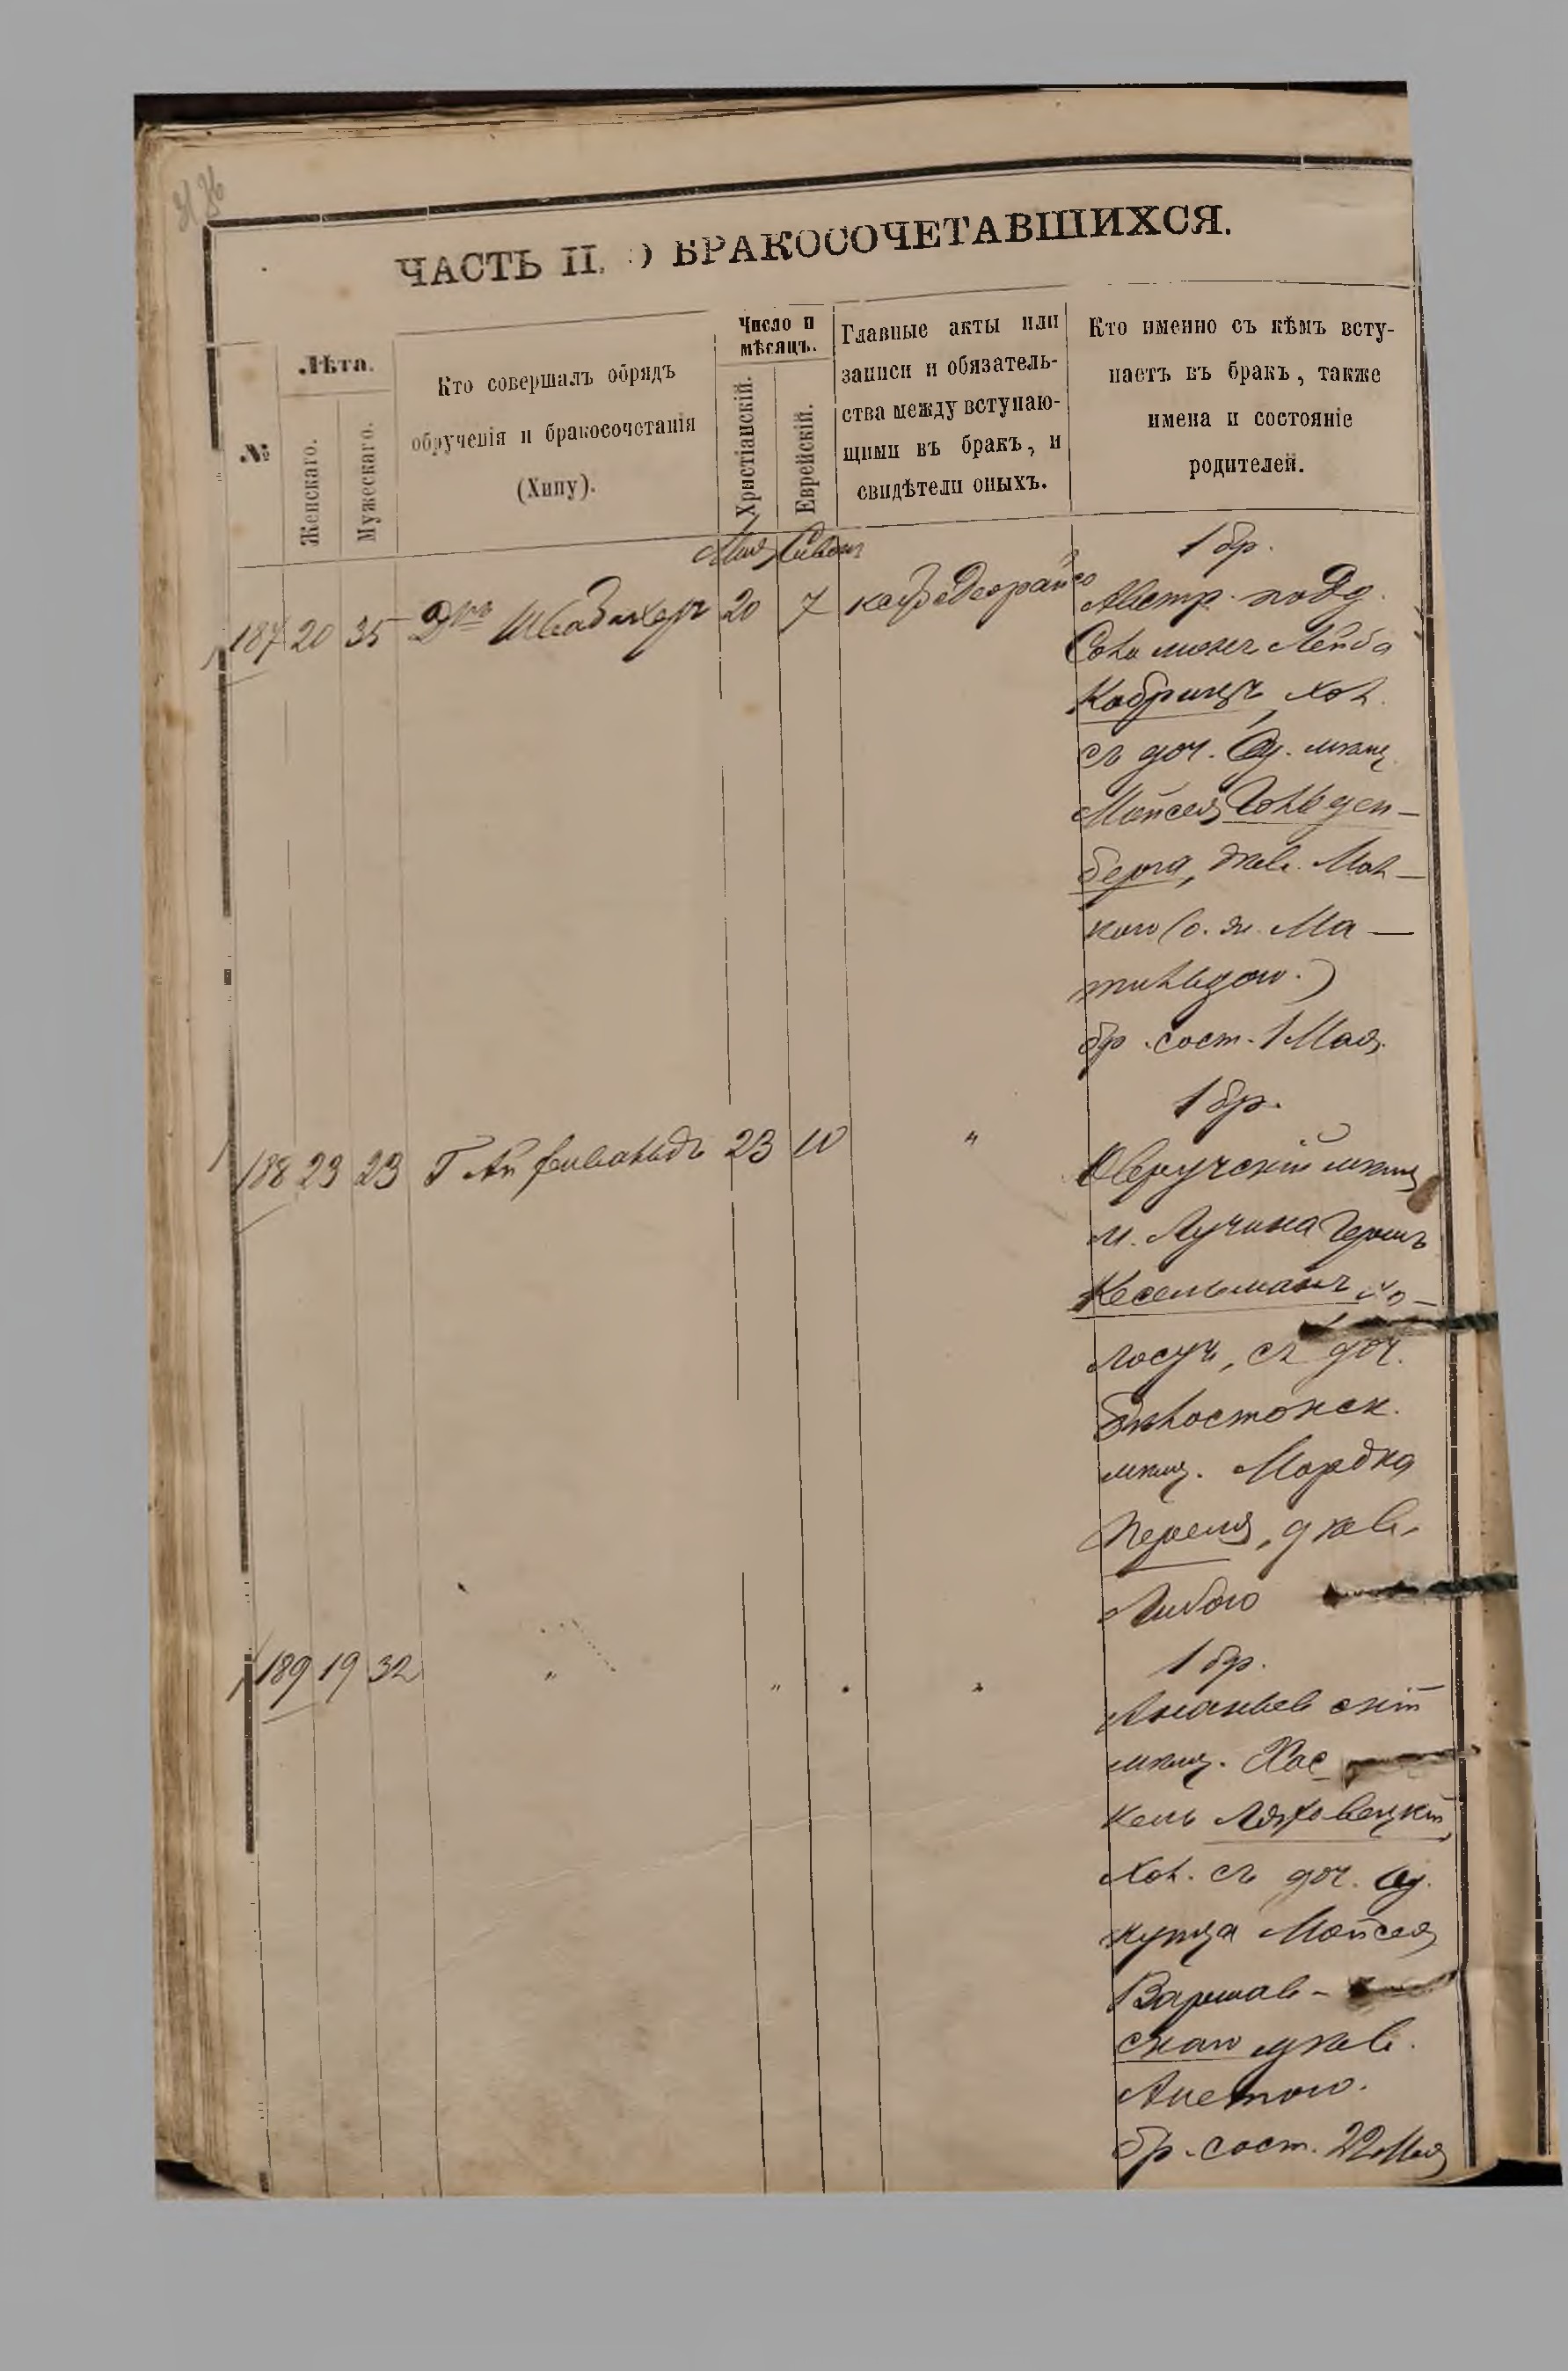 ЧАСТЬ II. О БРАКОСОЧЕТАВШИХСЯ.
№
Лѣта.
Женскаго.
Мужескаго.
Кто совершалъ обрядъ
обрученія и бракосочетанія
(Хипу).
Число и
мѣсяцъ.
Христіанскій.
Еврейскій.
Главные акты или
записи и обязатель-
ства между вступаю-
щими въ бракъ, и
свидѣтели оныхъ.
Кто именно съ кѣмъ всту-
паетъ въ бракъ, также
имена и состояніе
родителей.
Мая Сиванъ
1 бр.
187 20 35 Д-ръ Швабахеръ 20 7
Австр. подд.
Соломонъ Лейба
Кобринъ, хол.
съ доч. Од. мѣщ.
Мойсея Гольден-
берга, дѣв. Мал-
кою (о. ж. Ма-
тильдою.)
бр. сост. 1 Мая.
1 бр.
188 23 23 Г. Айзенвальдъ 23 10 "
Овручскій мѣщ.
м. Лучина Гершъ
Кесельманъ хо-
лосуч, съ доч.
бѣлостокск.
мѣщ. Мордка
Переля, дѣв.
Либою
1 бр.
189 19 32 " " " "
Ананьевскій
мѣщ. Хас
кель Ляховецкій,
хол. съ доч. Од.
купца Мойсея
Варшав-
скаго дѣв.
Анетою.
бр. сост. 22 Мая